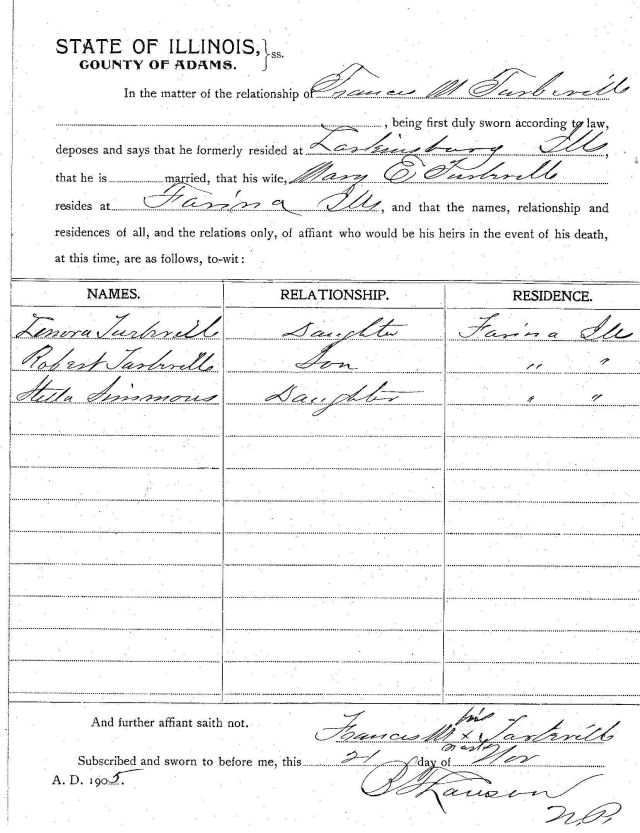 STATE OF ILLINOIS, } ss.
COUNTY OF ADAMS.
In the matter of the relationship of Francis M Turbeville
, being first duly sworn according to law,
deposes and says that he formerly resided at Larkinsburg Ills,
that he is married, that his wife, Mary E Turbville
resides at Farina Ills, and that the names, relationship and
residences of all, and the relations only, of affiant who would be his heirs in the event of his death,
at this time, are as follows, to-wit:
NAMES. RELATIONSHIP. RESIDENCE.
Lenora Turbvills Daughter Farina Ills
Robert Turbvills Son " "
Stella Simmons Daughter " "
And further affiant saith not.
his
Francis M x Turbvills
mark
Subscribed and sworn to before me, this 21 day of Nov
A. D. 1905.
N.P.